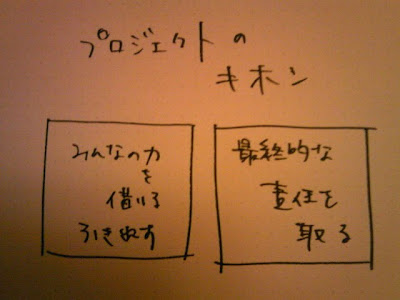 プロジェクトの
キホン
みんなの力
を
借りる
引き出す
最終的な
責任を
取る